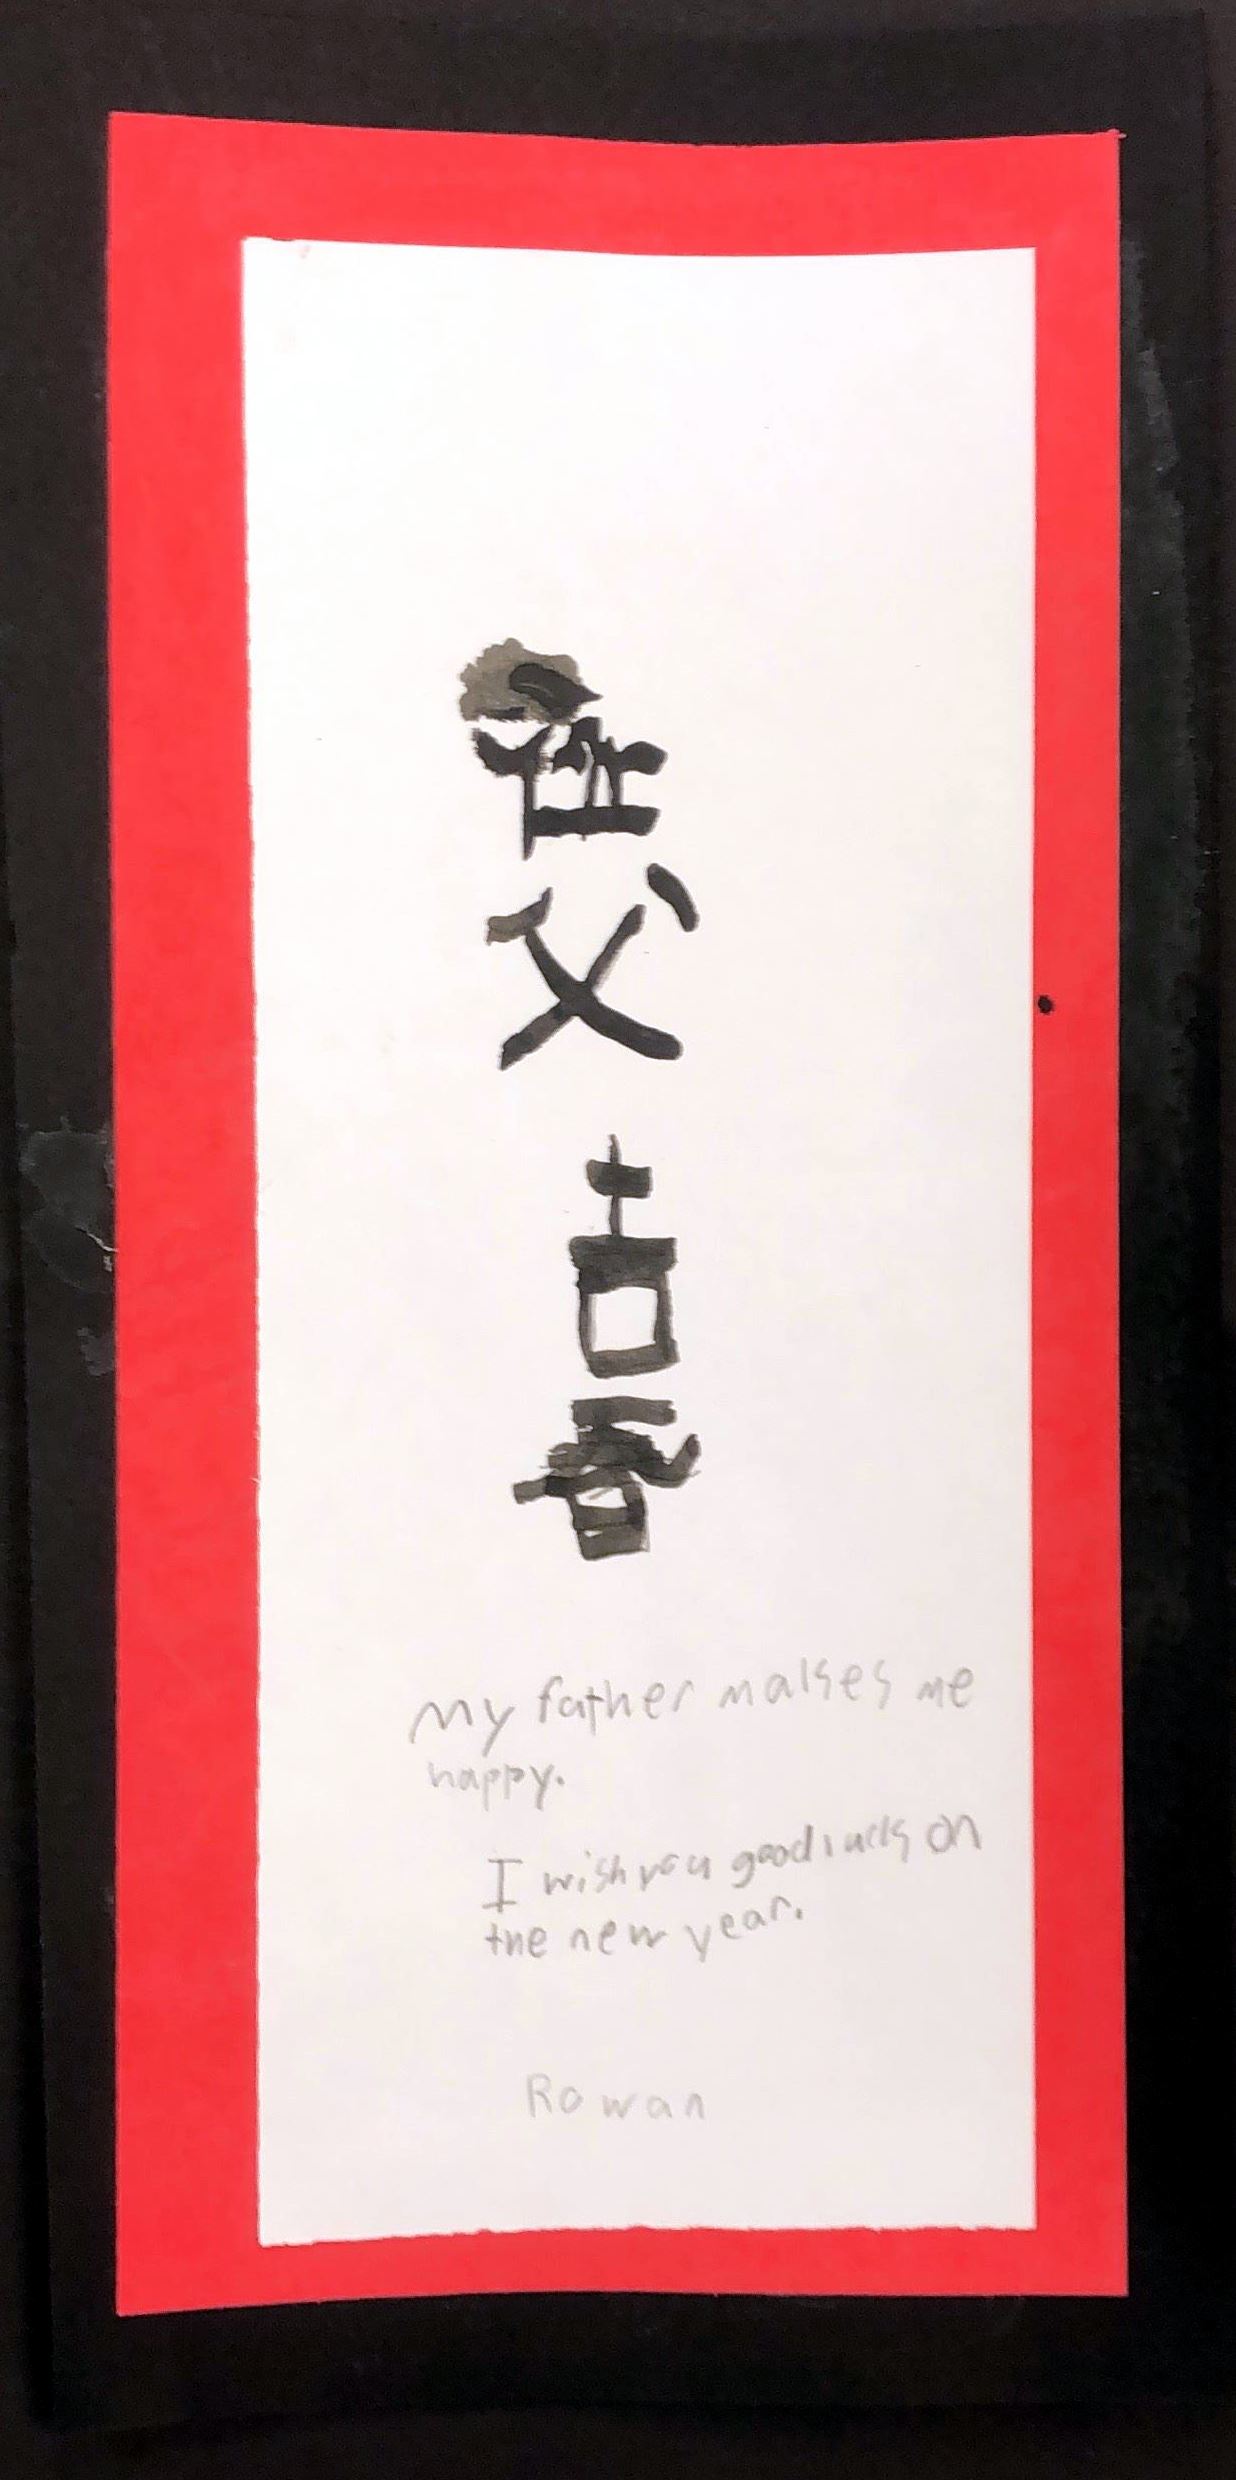 父
喜
My father makes me
happy.
I wish you good luck on
the new year.
Rowan